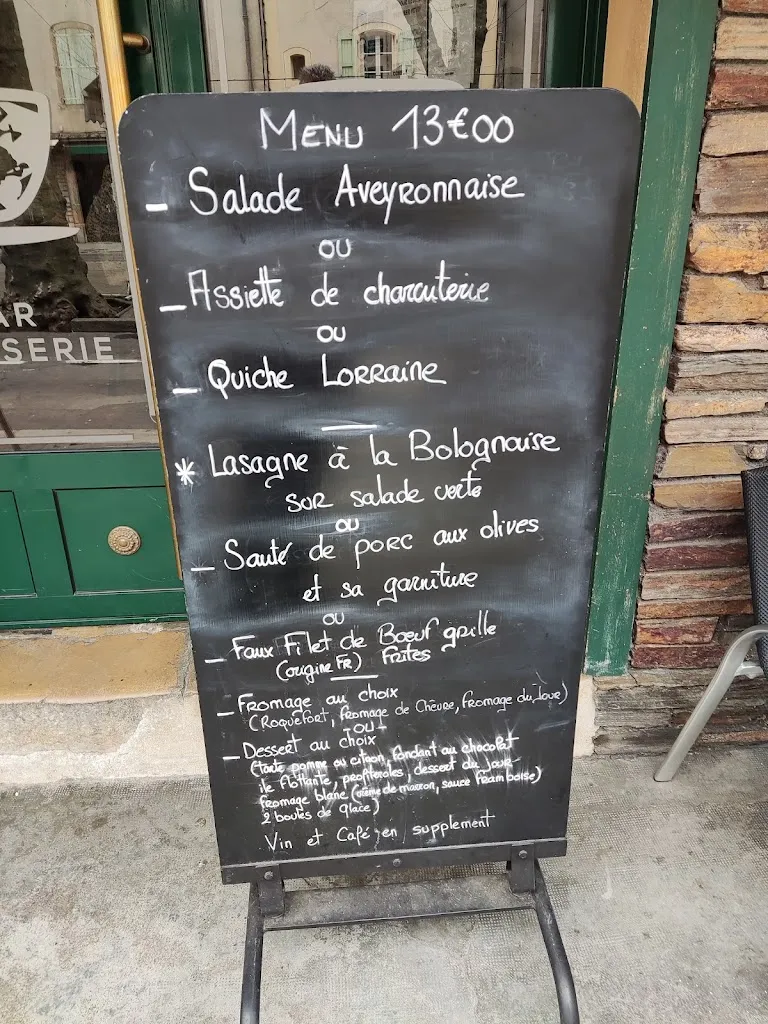 MENU 13€00
- Salade Aveyronnaise
ou
- Assiette de charcuterie
ou
- Quiche Lorraine
* Lasagne à la Bolognaise
sur salade verte
ou
- Sauté de porc aux olives
et sa garniture
ou
- Faux Filet de Bœuf grille
(origine FR) frites
- Fromage au choix
(Roquefort, fromage de Chèvre, fromage du Jour)
- OU -
- Dessert au choix
(tarte pomme ou citron, fondant au chocolat
ile flottante, profiteroles, dessert du jour
fromage blanc (crème de marron, sauce framboise)
2 boules de glace)
Vin et Café en supplement
AR
SERIE